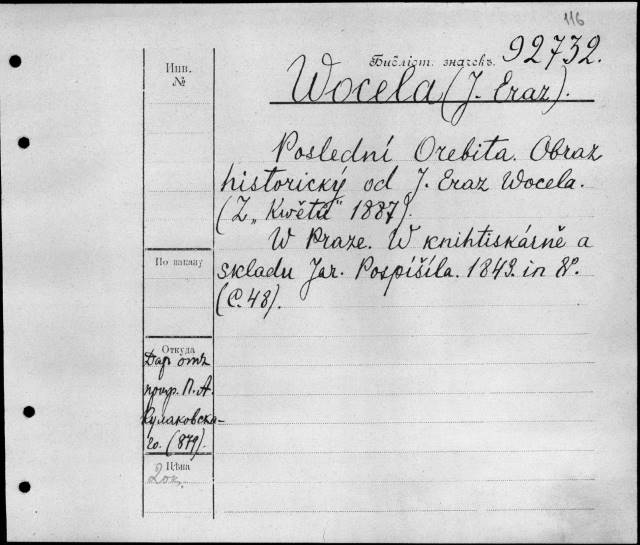 116
Библіот. значекъ. 92732.
Wocela (J. Eraz).
Инв.
№
Poslední Orebita. Obraz
historický od J. Eraz Wocela.
(Z „Kwětů" 1887).
W Praze. W knihtiskárně a
skladu Jar. Pospíšila. 1843. in 8°.
(C. 48).
По заказу
Откуда
Даръ отъ
проф. П. А.
Кулаковска-
го. (879).
Цѣна
20 к.